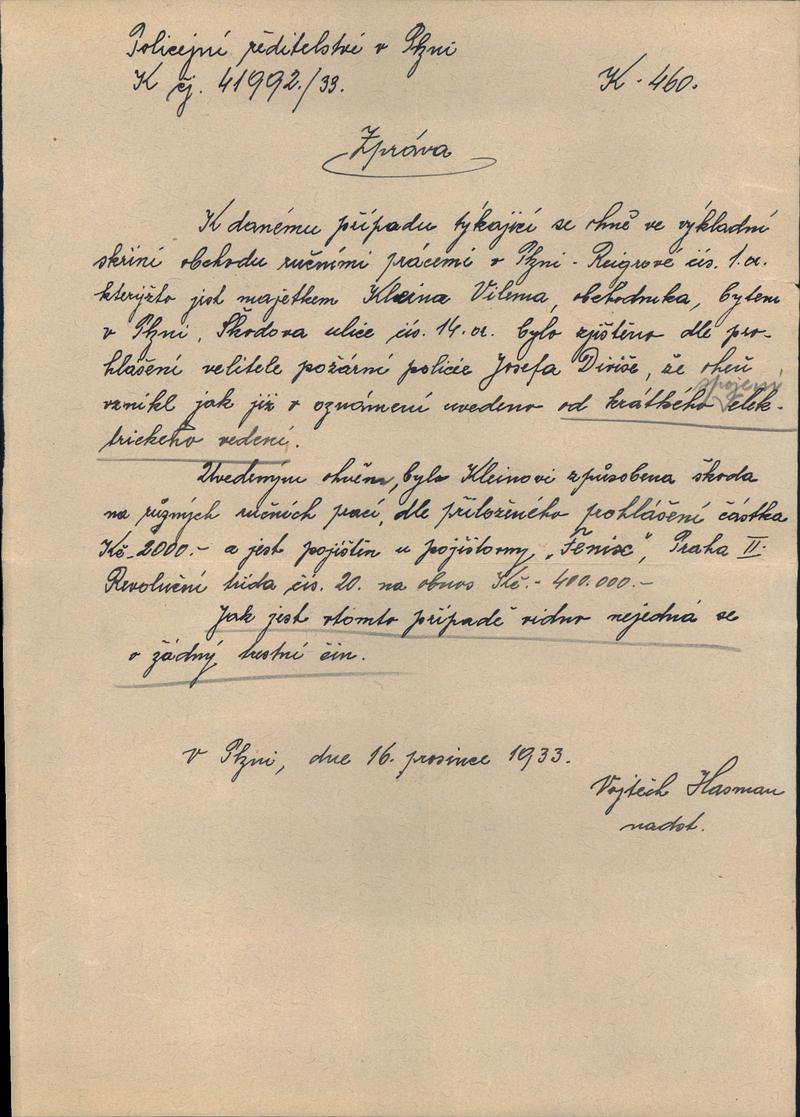 Policejní ředitelství v Plzni
K čj. 41992./33. K - 460.
Zpráva
K danému případu týkající se ohně ve výkladní
skříni obchodu ručními prácemi v Plzni - Reigrově čís. 1. a.
kterýžto jest majetkem Kleina Viléma, obchodníka, bytem
v Plzni, Škodova ulice čís. 14. a. bylo zjištěno dle pro-
hlášení velitele požární policie Josefa Diviše, že oheň
spojení
vznikl jak již v oznámení uvedeno od krátkého elek-
trického vedení.
Uvedeným ohněm, byla Kleinovi způsobena škoda
na různých ručních prací, dle přiloženého prohlášení částka
Kč - 2000.- a jest pojištěn u pojišťovny „Fenix", Praha II.
Revoluční třída čís. 20. na obnos Kč.- 400.000.-
Jak jest vtomto případě vidno nejedná se
o žádný trestní čin.
V Plzni, dne 16. prosince 1933.
Vojtěch Hasman
nadst.